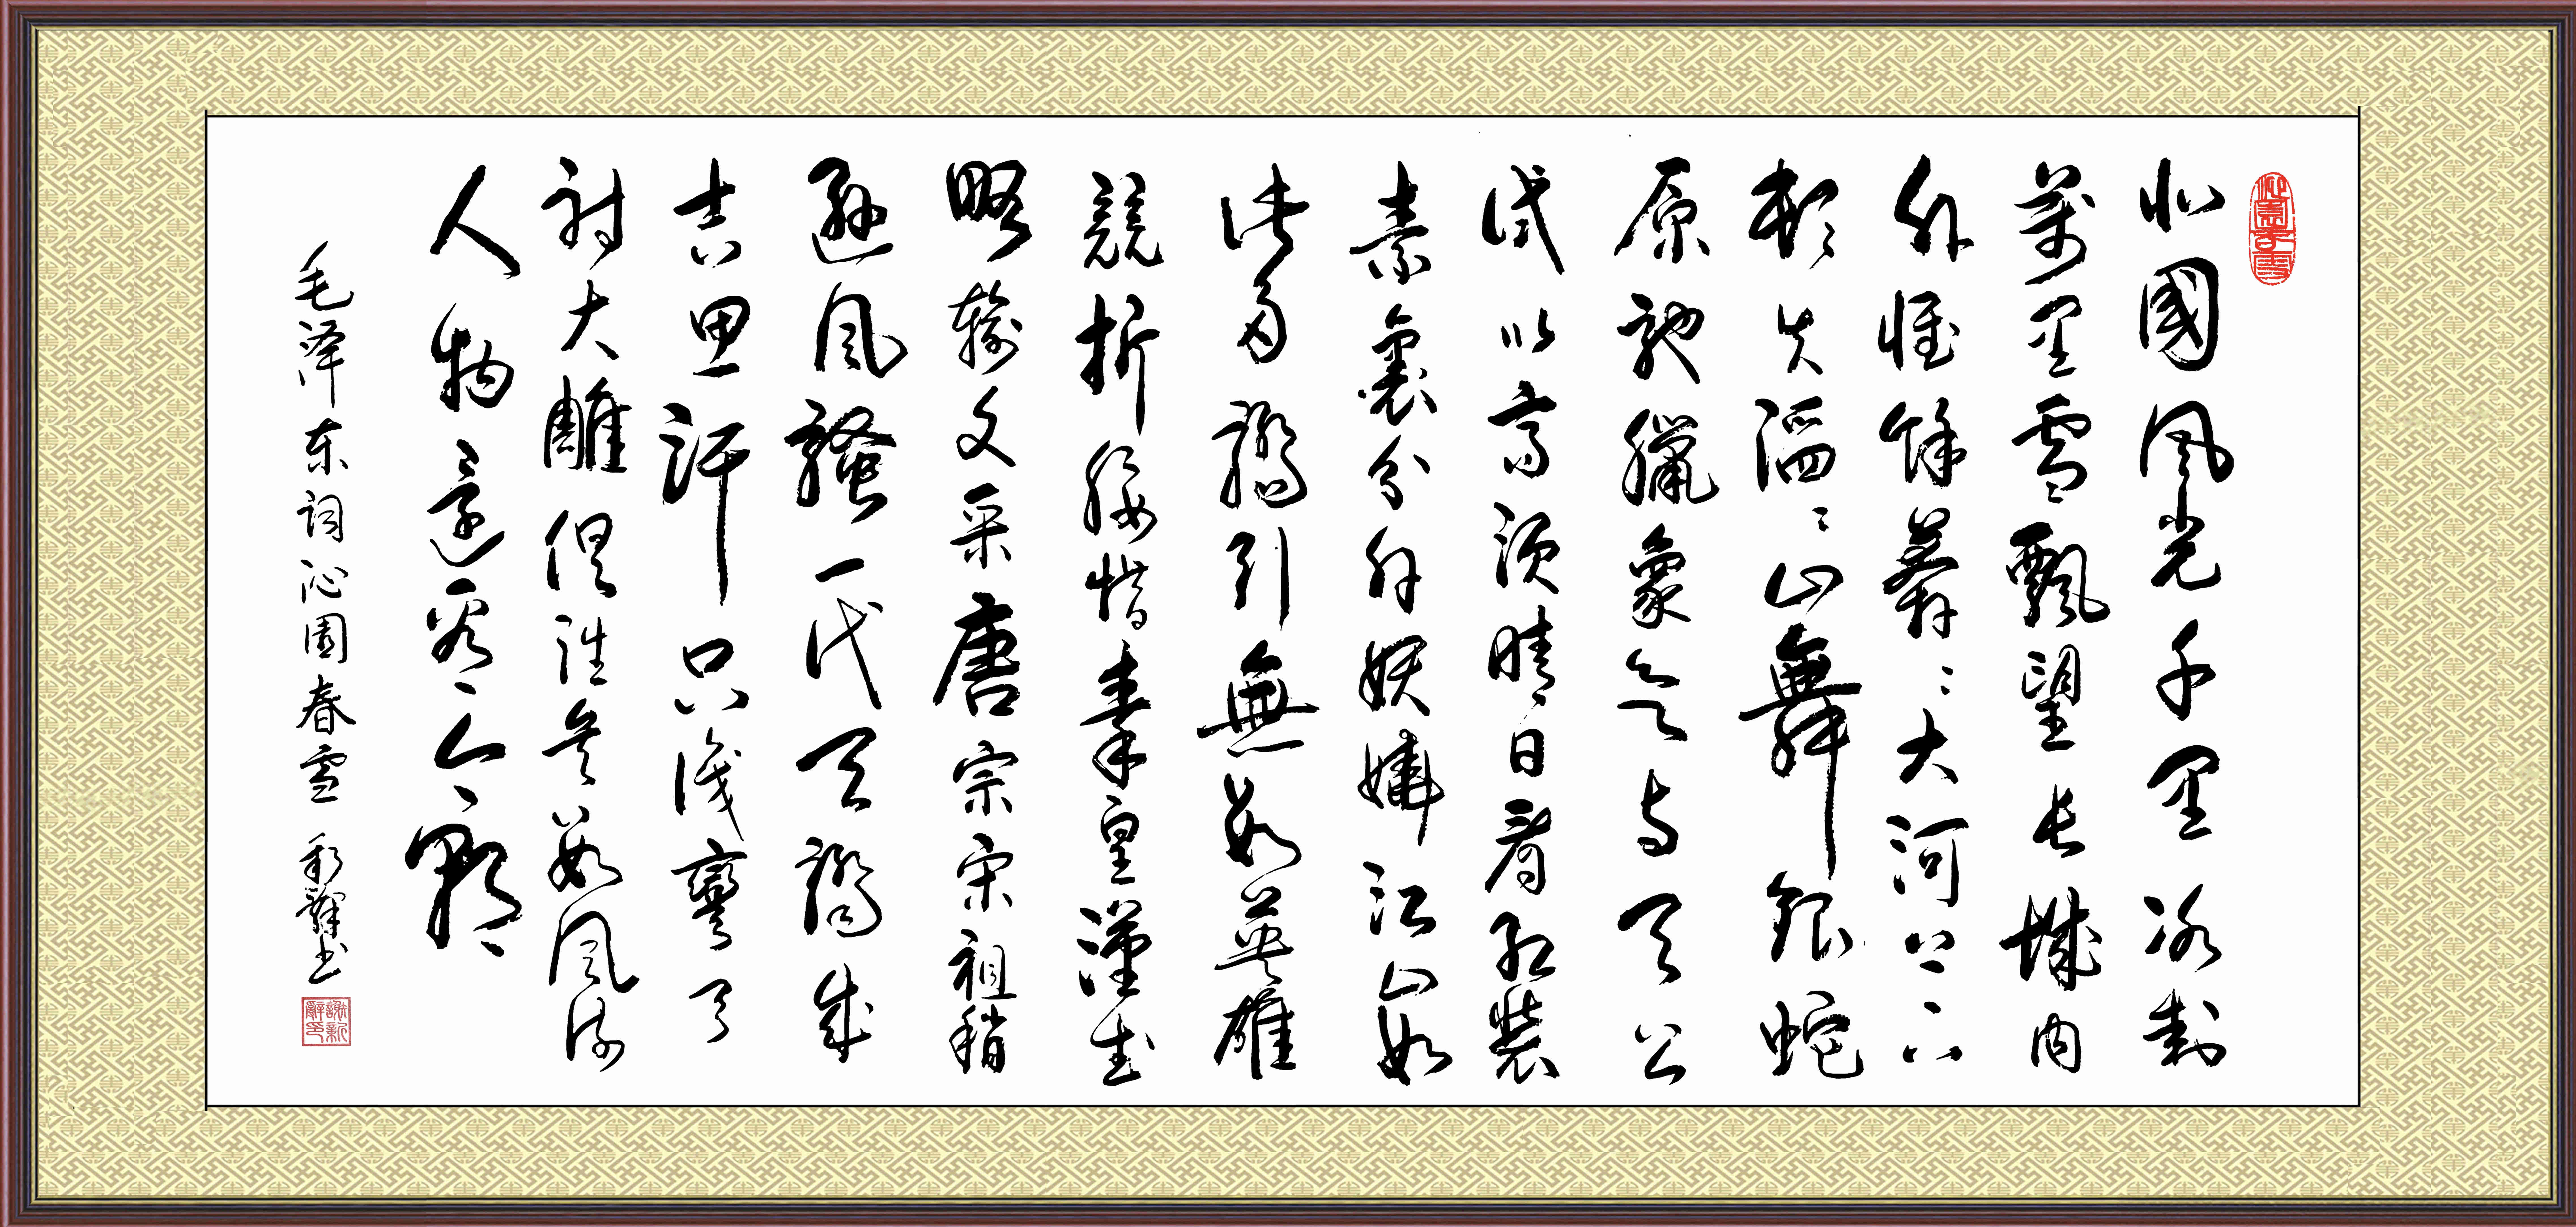 北國風光千里冰封
萬里雪飄望長城内
外惟餘莽〻大河上下
頓失滔〻山舞銀蛇
原馳臘象欲与天公
試比高須晴日看紅裝
素裹分外妖嬈江山如
此多嬌引無數英雄
競折腰惜秦皇漢武
略輸文采唐宗宋祖稍
遜風騷一代天驕成
吉思汗只識彎弓
射大雕俱往矣數風流
人物還看今朝
毛泽东词沁園春雪 新辭书
謝新辭印